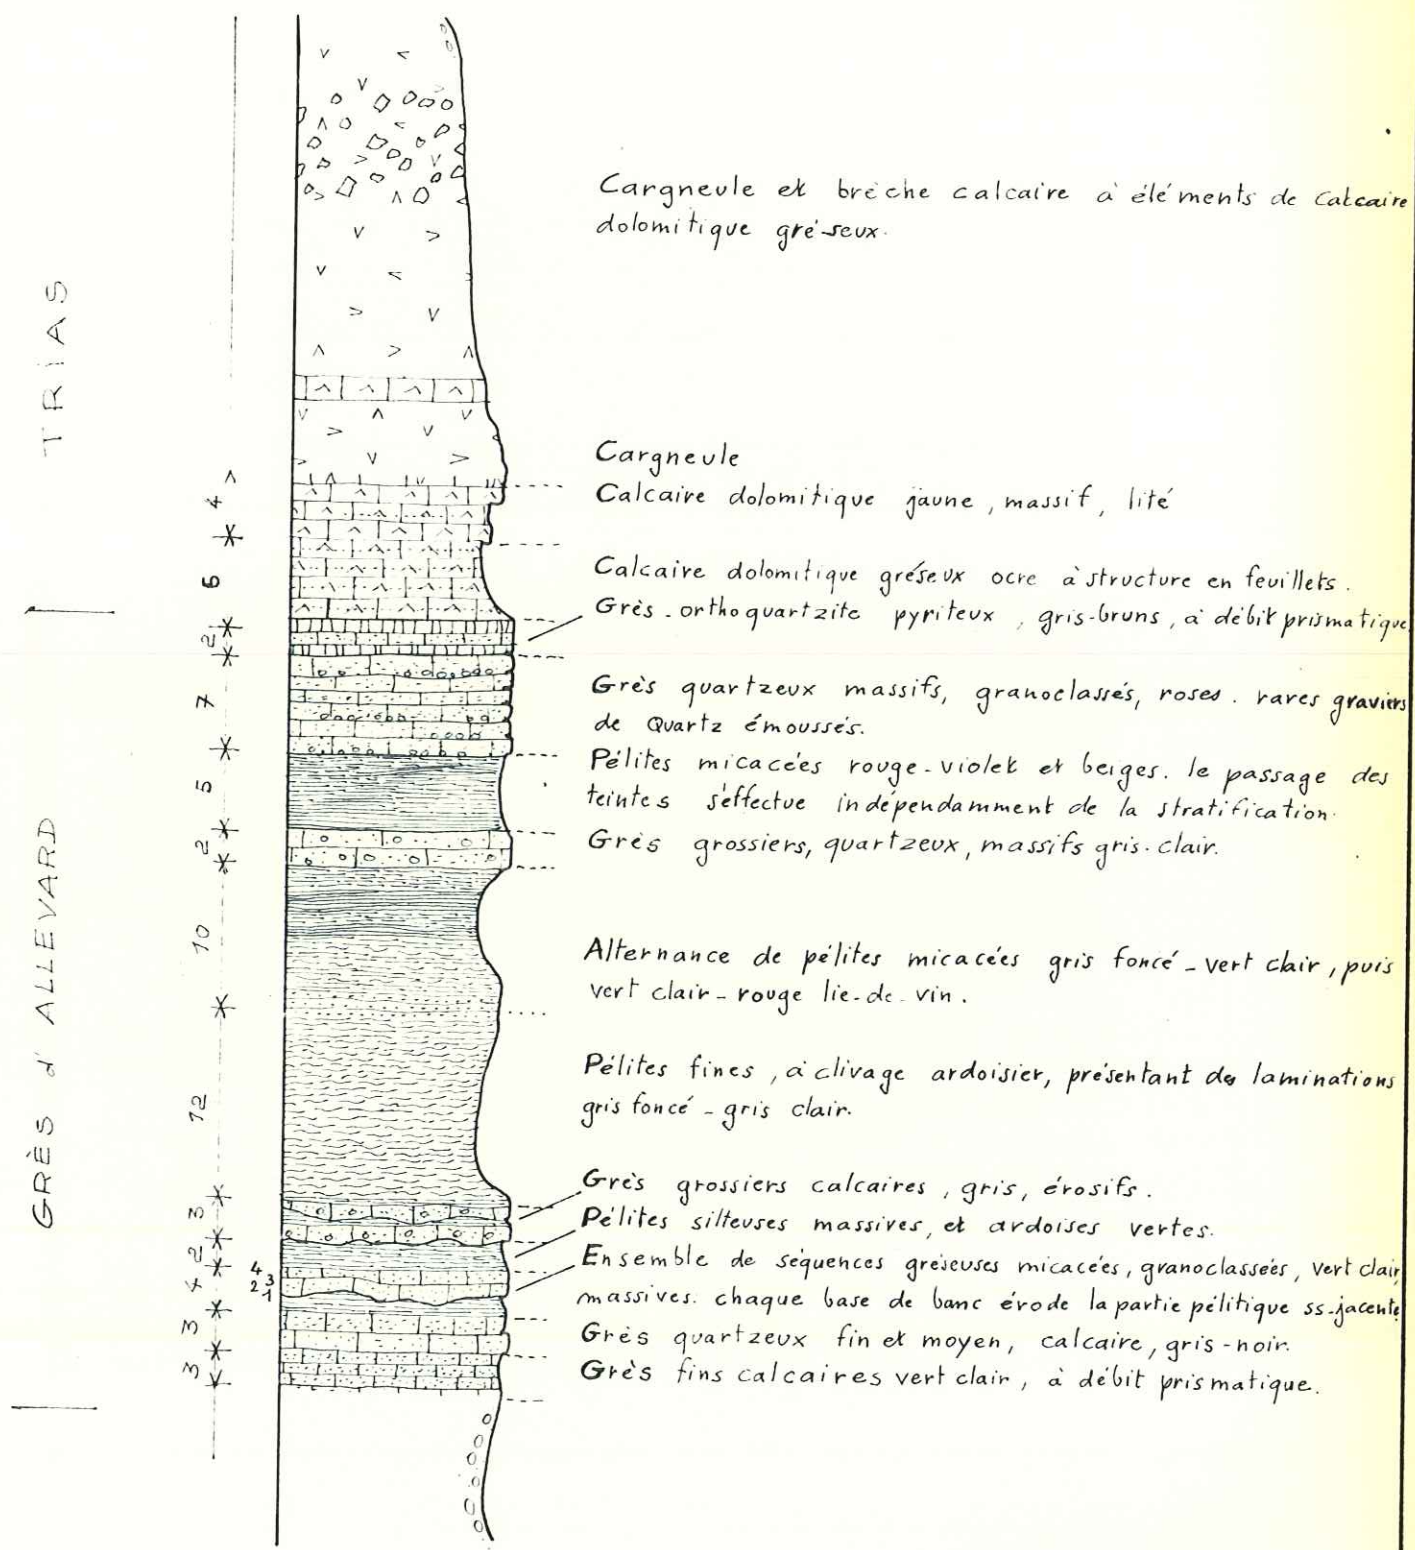 TRIAS
GRÈS d'ALLEVARD
4
6
2
7
5
2
10
12
3
2
4
3
3
4
3
2
1
Cargneule et brèche calcaire à éléments de calcaire
dolomitique gréseux.
Cargneule
Calcaire dolomitique jaune, massif, lité
Calcaire dolomitique gréseux ocre à structure en feuillets.
Grès-orthoquartzite pyriteux, gris-bruns, à débit prismatique
Grès quartzeux massifs, granoclassés, roses. rares graviers
de Quartz émoussés.
Pélites micacées rouge-violet et beiges. le passage des
teintes s'effectue indépendamment de la stratification.
Grès grossiers, quartzeux, massifs gris-clair.
Alternance de pélites micacées gris foncé - vert clair, puis
vert clair - rouge lie-de-vin.
Pélites fines, à clivage ardoisier, présentant des laminations
gris foncé - gris clair.
Grès grossiers calcaires, gris, érosifs.
Pélites silteuses massives, et ardoises vertes.
Ensemble de séquences gréseuses micacées, granoclassées, vert clair,
massives. chaque base de banc érode la partie pélitique ss-jacente
Grès quartzeux fin et moyen, calcaire, gris-noir.
Grès fins calcaires vert clair, à débit prismatique.